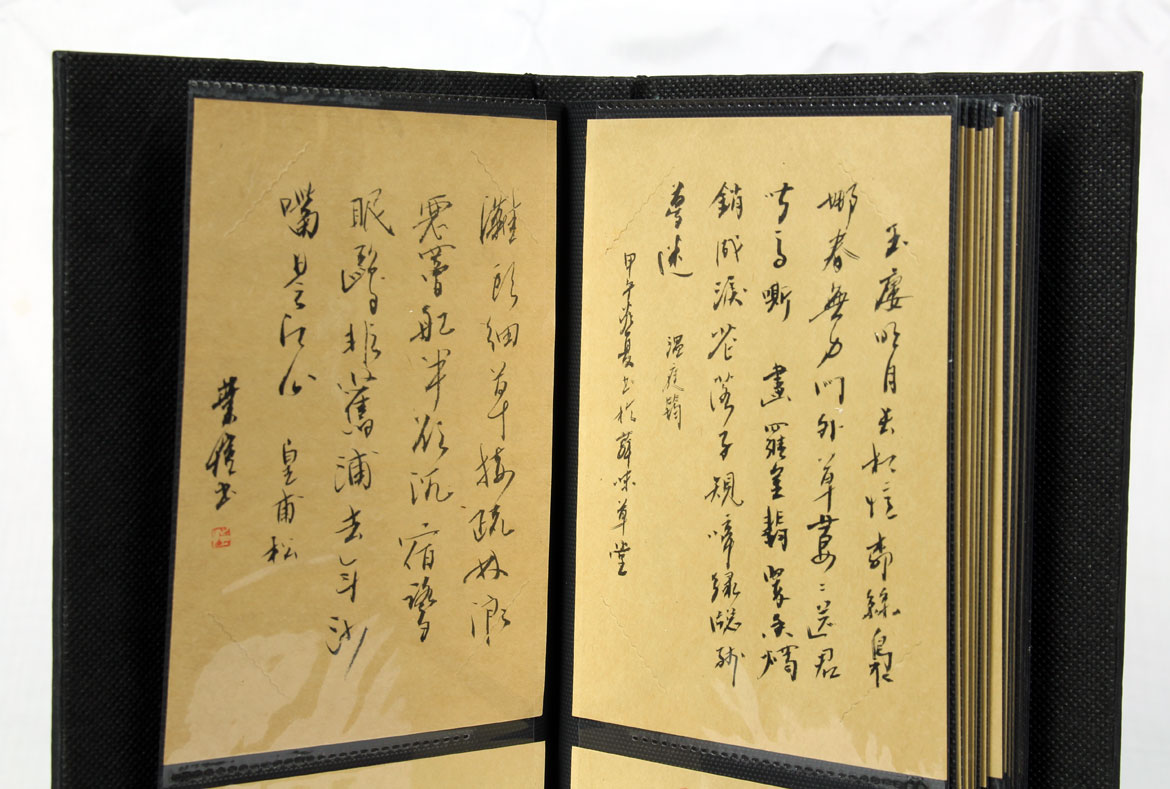 玉樓明月長相憶柳絲裊
娜春無力門外草萋〻送君
聞馬嘶 畫羅金翡翠香燭
銷成淚花落子規啼綠窗殘
夢迷 溫庭筠
甲午炎夏書於 味草堂
灘頭細草接疏林浪
惡罾船半欲沉宿鷺
眠鷗非舊浦去年沙
嘴是江心 皇甫松
葉 書